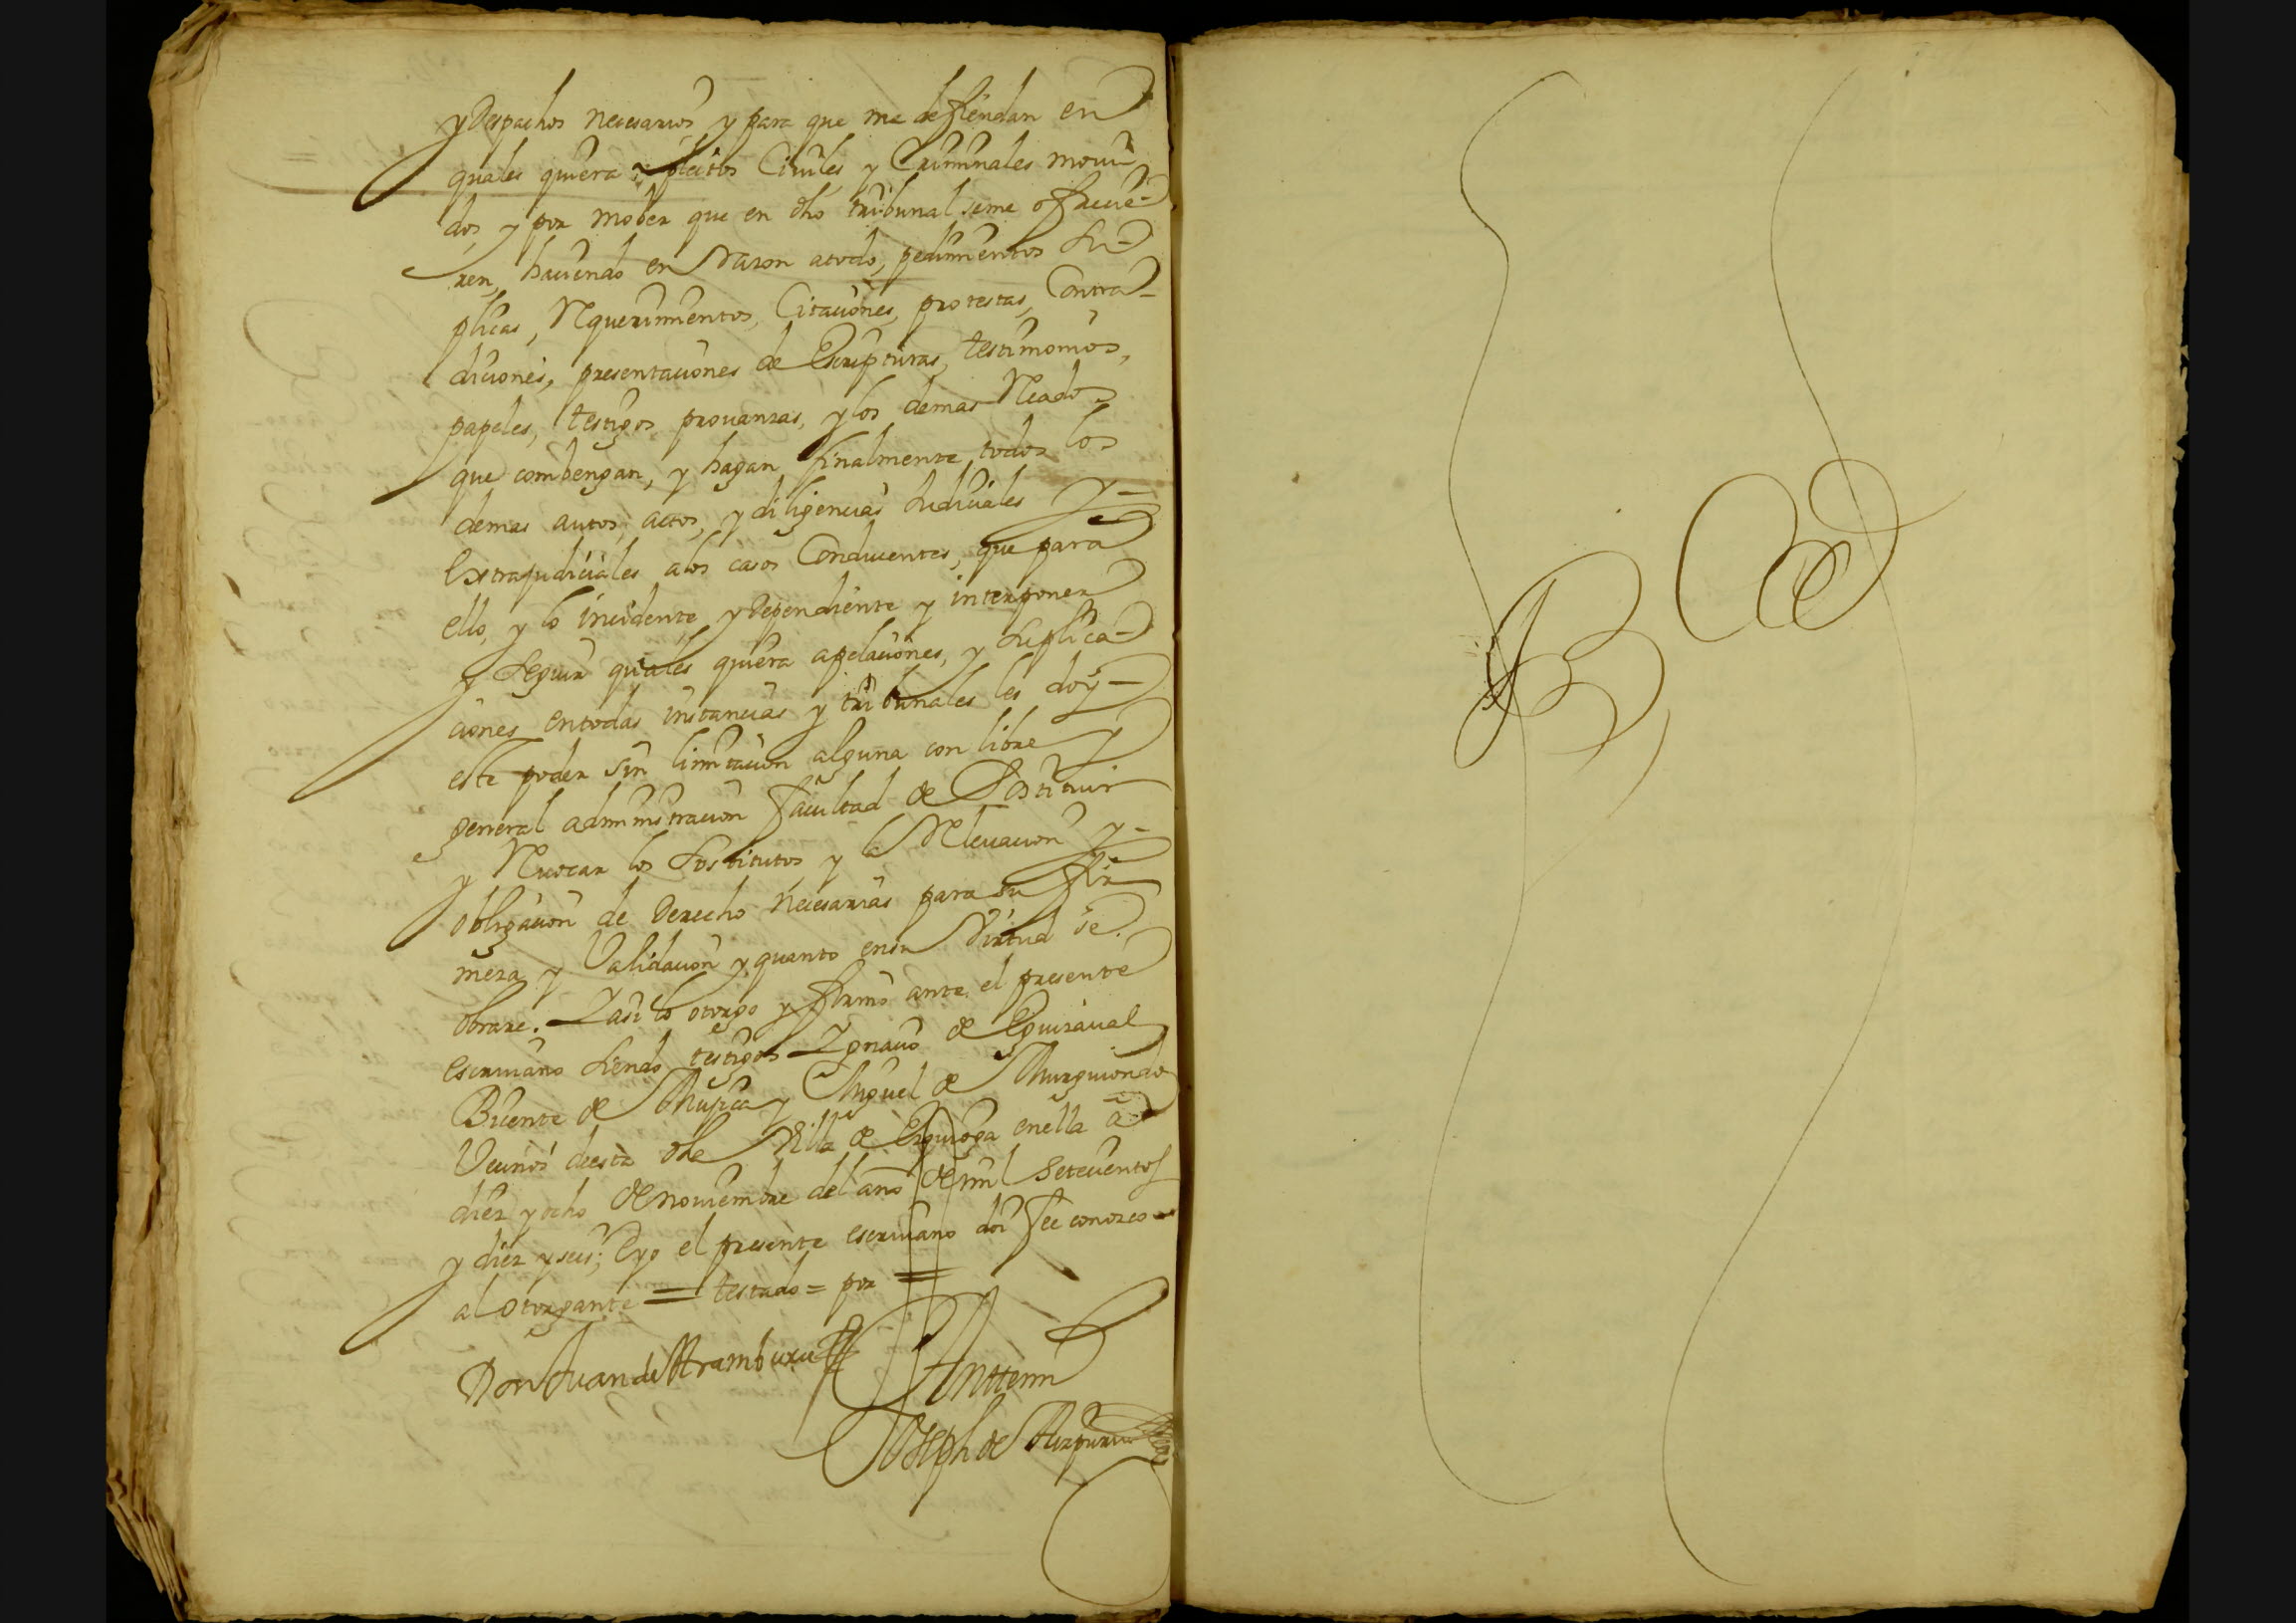 y Despachos necesarios, y para que me defiendan en
quales quiera pleitos Ciuiles y Criminales moui-
dos, y por mober que en dho tribunal seme ofrecie-
ren, haciendo en Razon atodo, pedimientos Su-
plicas, Requerimientos, Citaciones, protestas, Contra-
diciones, presentaciones de Escripturas, testimonios,
papeles, testigos, prouanzas, y los demas Recados
que combengan, y hagan finalmente todos los
demas autos, actos, y diligencias Judiciales y -
Extrajudiciales alos casos Conducentes, que para
ello, y lo incidente, y Dependiente y interponer
y Seguir quales quiera apelaciones, y Suplica-
ciones entodas instancias y tribunales les doy -
este poder sin limitacion alguna con libre y
general administracion facultad de Sostituir
y Reuocar los Sostitutos, y la Releuacion y -
obligacion de Derecho necesarias para su fir
meza y Validacion y quanto ensu Virtud se
obrare. Y asi lo otorgo y firmo ante el presente
escriuano siendo testigos Ygnacio de Eguizaual
Bicente de Mugica y Miguel de Murguiondo
Vecinos deesta dha Villa de Ezquioga enella a
diez y ocho de nouiembre del año de mil setecientos
y diez y seis; E yo el presente escriuano doi fee conozco
al otorgante = testado = por =
Don Juan de Aramburu
Antemi
Joseph de Aizpuru